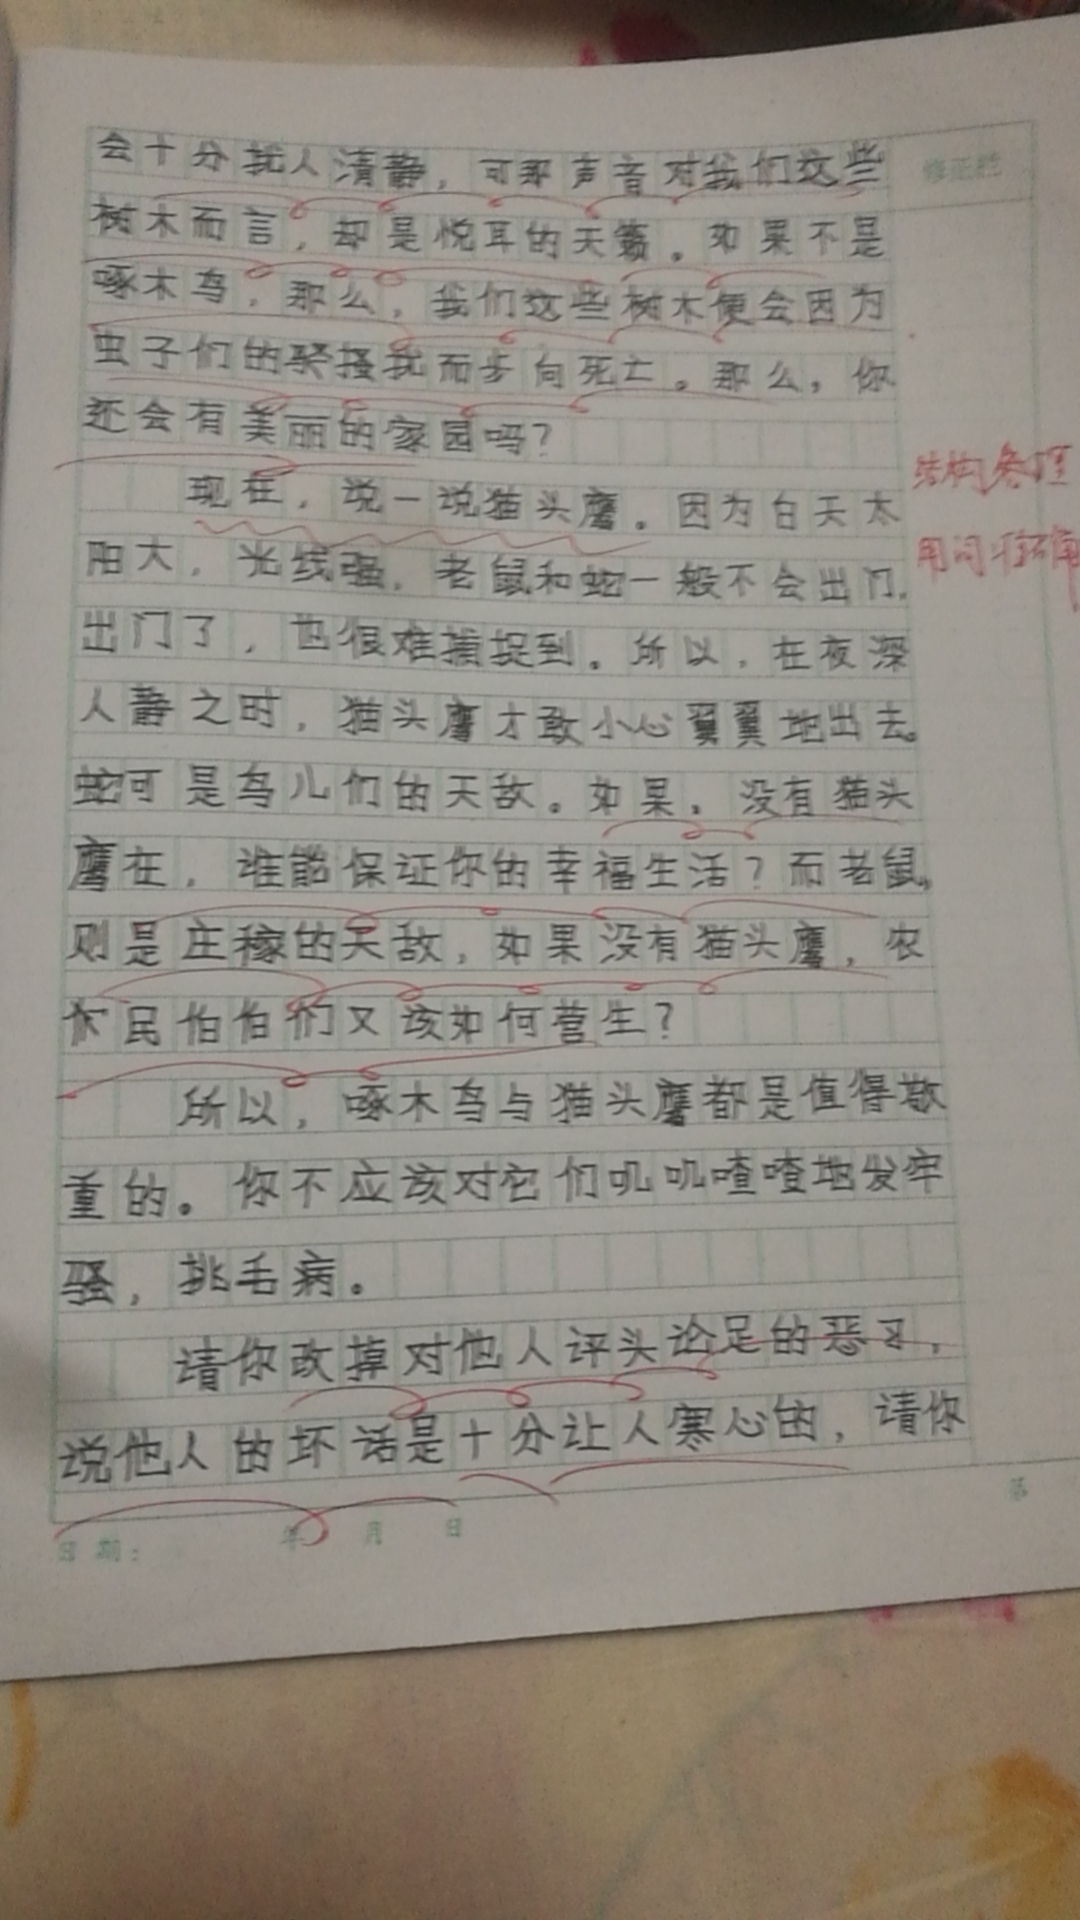 会十分扰人清静，可那声音对我们这些
修正栏
树木而言，却是悦耳的天籁。如果不是
啄木鸟，那么，我们这些树木便会因为
虫子们的骚扰而步向死亡。那么，你
还会有美丽的家园吗？
现在，说一说猫头鹰。因为白天太
结构
阳大，光线强，老鼠和蛇一般不会出门，
用词准确
出门了，也很难捕捉到。所以，在夜深
人静之时，猫头鹰才敢小心翼翼地出去。
蛇可是鸟儿们的天敌。如果，没有猫头
鹰在，谁能保证你的幸福生活？而老鼠，
则是庄稼的天敌，如果没有猫头鹰，农
民伯伯们又该如何营生？
所以，啄木鸟与猫头鹰都是值得敬
重的。你不应该对它们叽叽喳喳地发牢
骚，挑毛病。
请你改掉对他人评头论足的恶习，
说他人的坏话是十分让人寒心的，请你
第
日期： 年 月 日